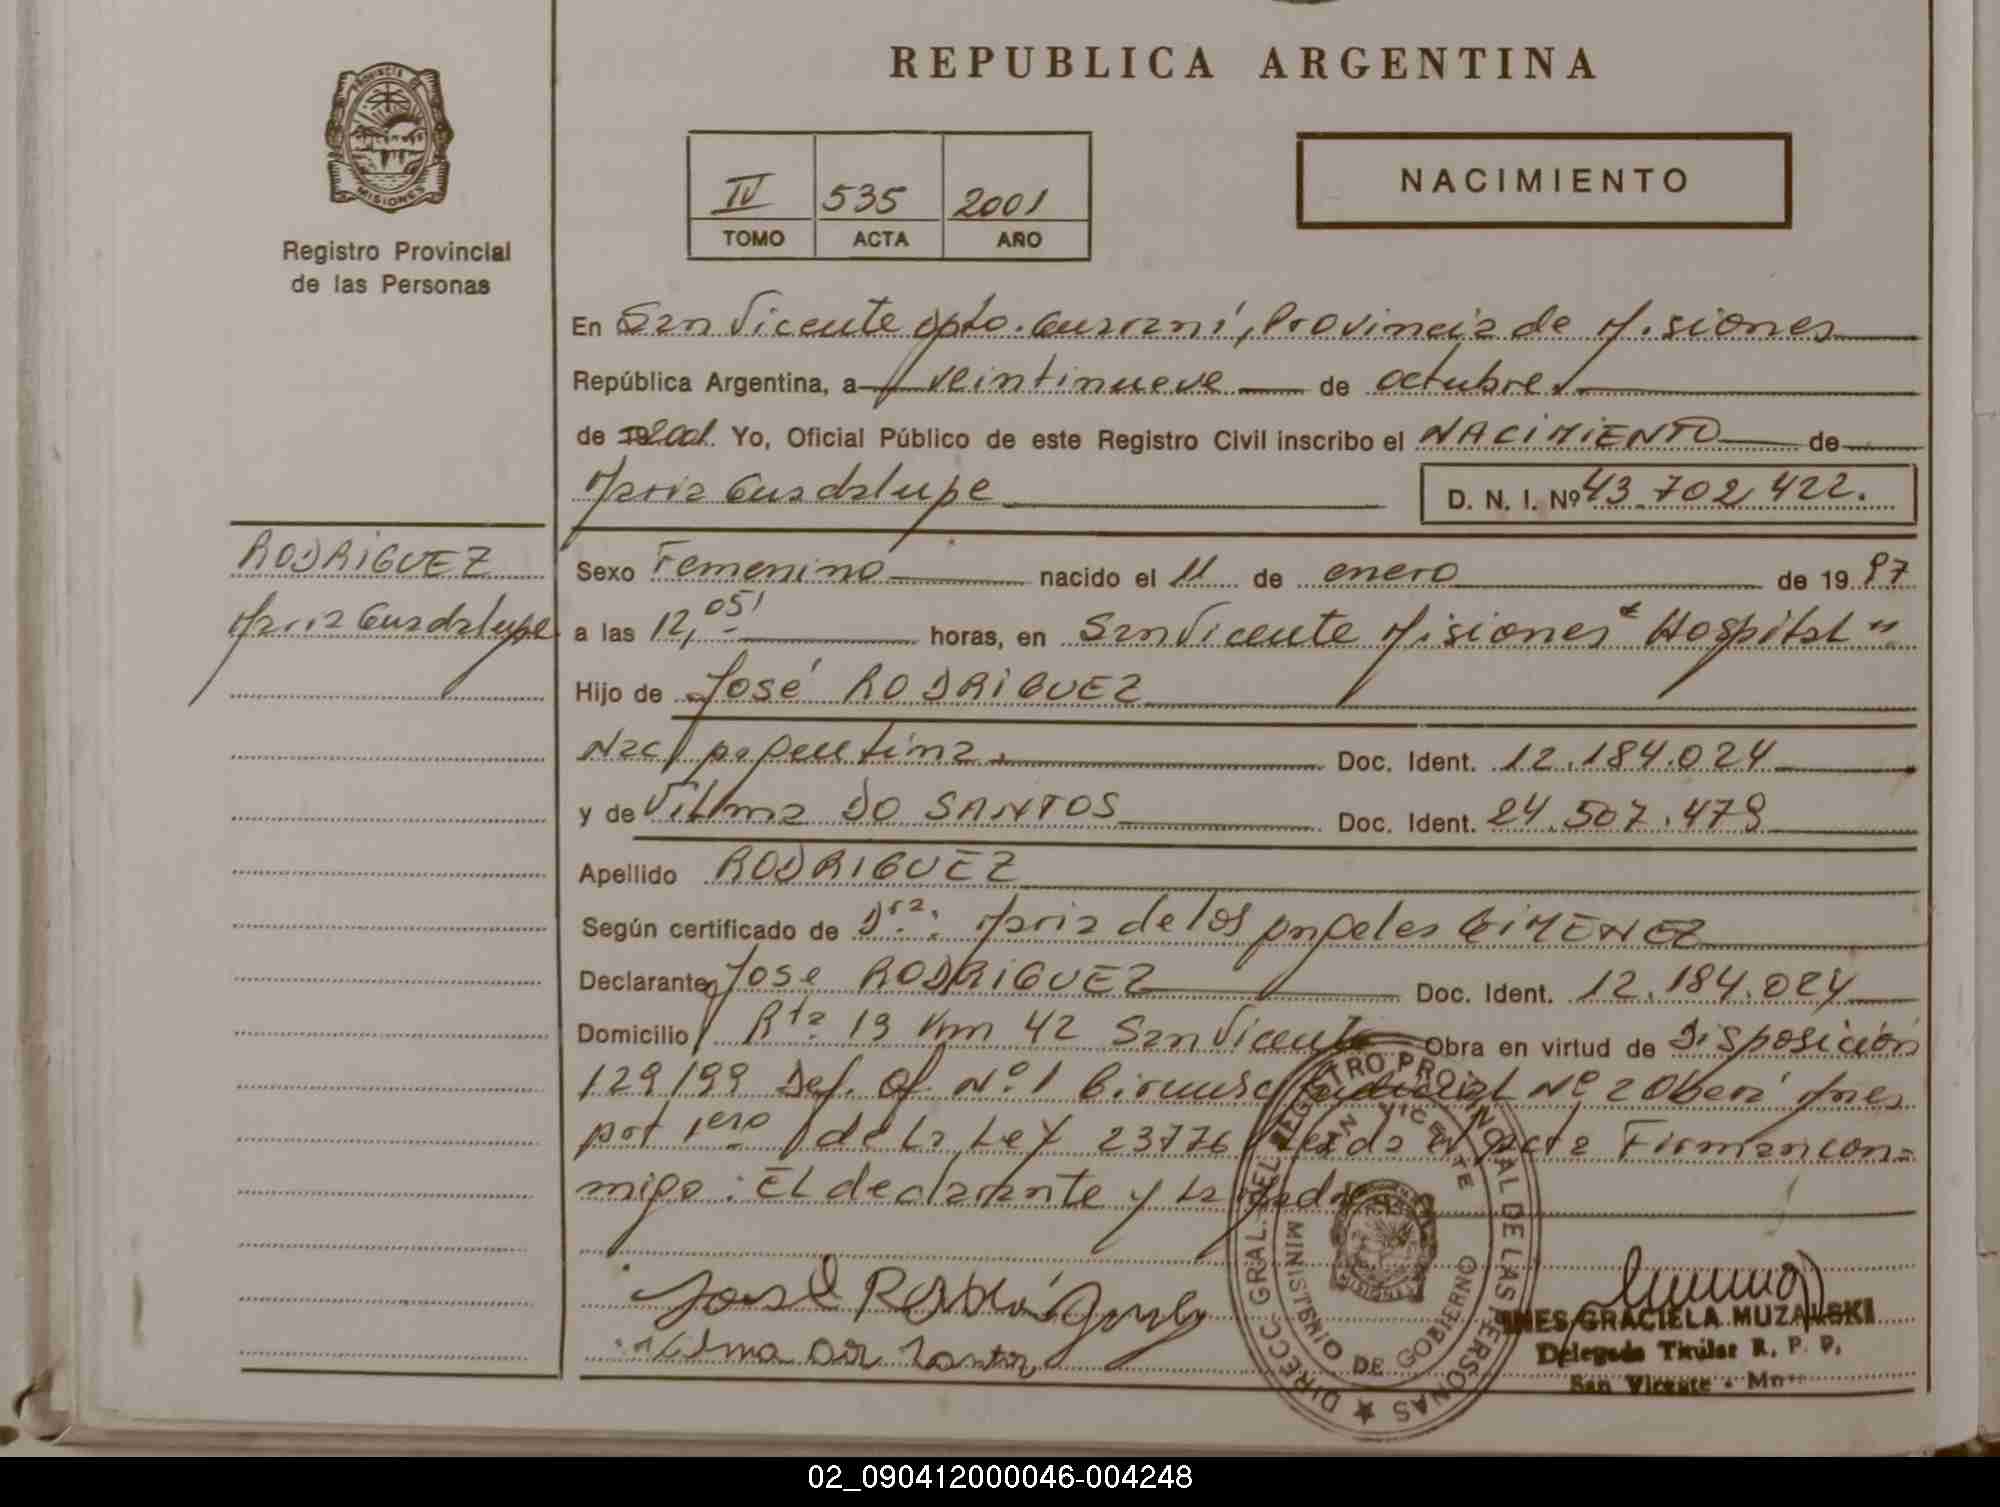 REPUBLICA ARGENTINA
PROVINCIA DE MISIONES
Registro Provincial
de las Personas
IV 535 2001
TOMO ACTA AÑO
NACIMIENTO
En San Vicente Dpto. Guaraní, Provincia de Misiones
República Argentina, a veintinueve de octubre
de 2001. Yo, Oficial Público de este Registro Civil inscribo el NACIMIENTO de
Maria Guadalupe D. N. I. Nº 43.702.422.
RODRIGUEZ
Maria Guadalupe
Sexo Femenino nacido el 11 de enero de 1997
a las 12,05' horas, en San Vicente Misiones "Hospital"
Hijo de José RODRIGUEZ
Nac. Argentina. Doc. Ident. 12.184.024
y de Vilma DO SANTOS Doc. Ident. 24.507.479
Apellido RODRIGUEZ
Según certificado de Dra. Maria de los Angeles GIMENEZ
Declarante José RODRIGUEZ Doc. Ident. 12.184.024
Domicilio Rta 13 Km 42 San Vicente Obra en virtud de Disposición
129/99 Def. Of. Nº 1 Circunsc. Judicial Nº 2 Oberá Mnes
Art 1ero de la Ley 23776 Leída el Acta Firman con=
migo: El declarante y la Madre
José Rodríguez
DIRECC. GRAL. DEL REGISTRO PROVINCIAL DE LAS PERSONAS
SAN VICENTE
MINISTERIO DE GOBIERNO
INES GRACIELA MUZALSKI
Delegada Titular R. P. P.
San Vicente - Mnes
02_090412000046-004248